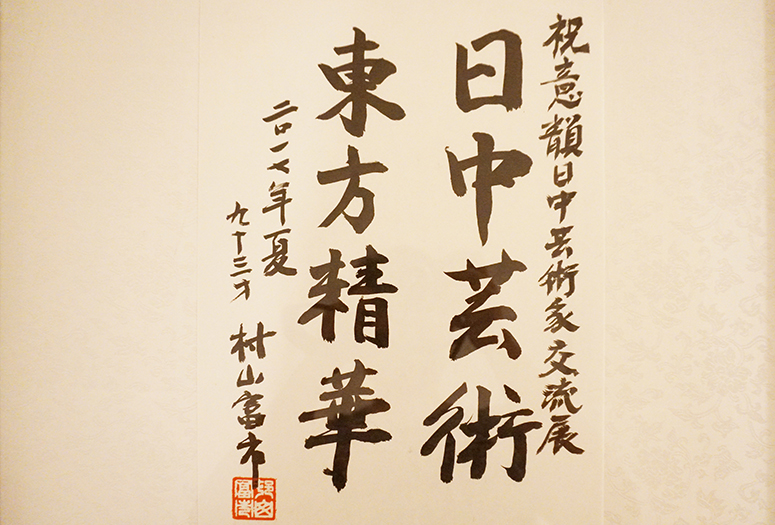 祝意韻日中芸術家交流展
日中芸術
東方精華
二〇一七年夏
九十三才
村山富市